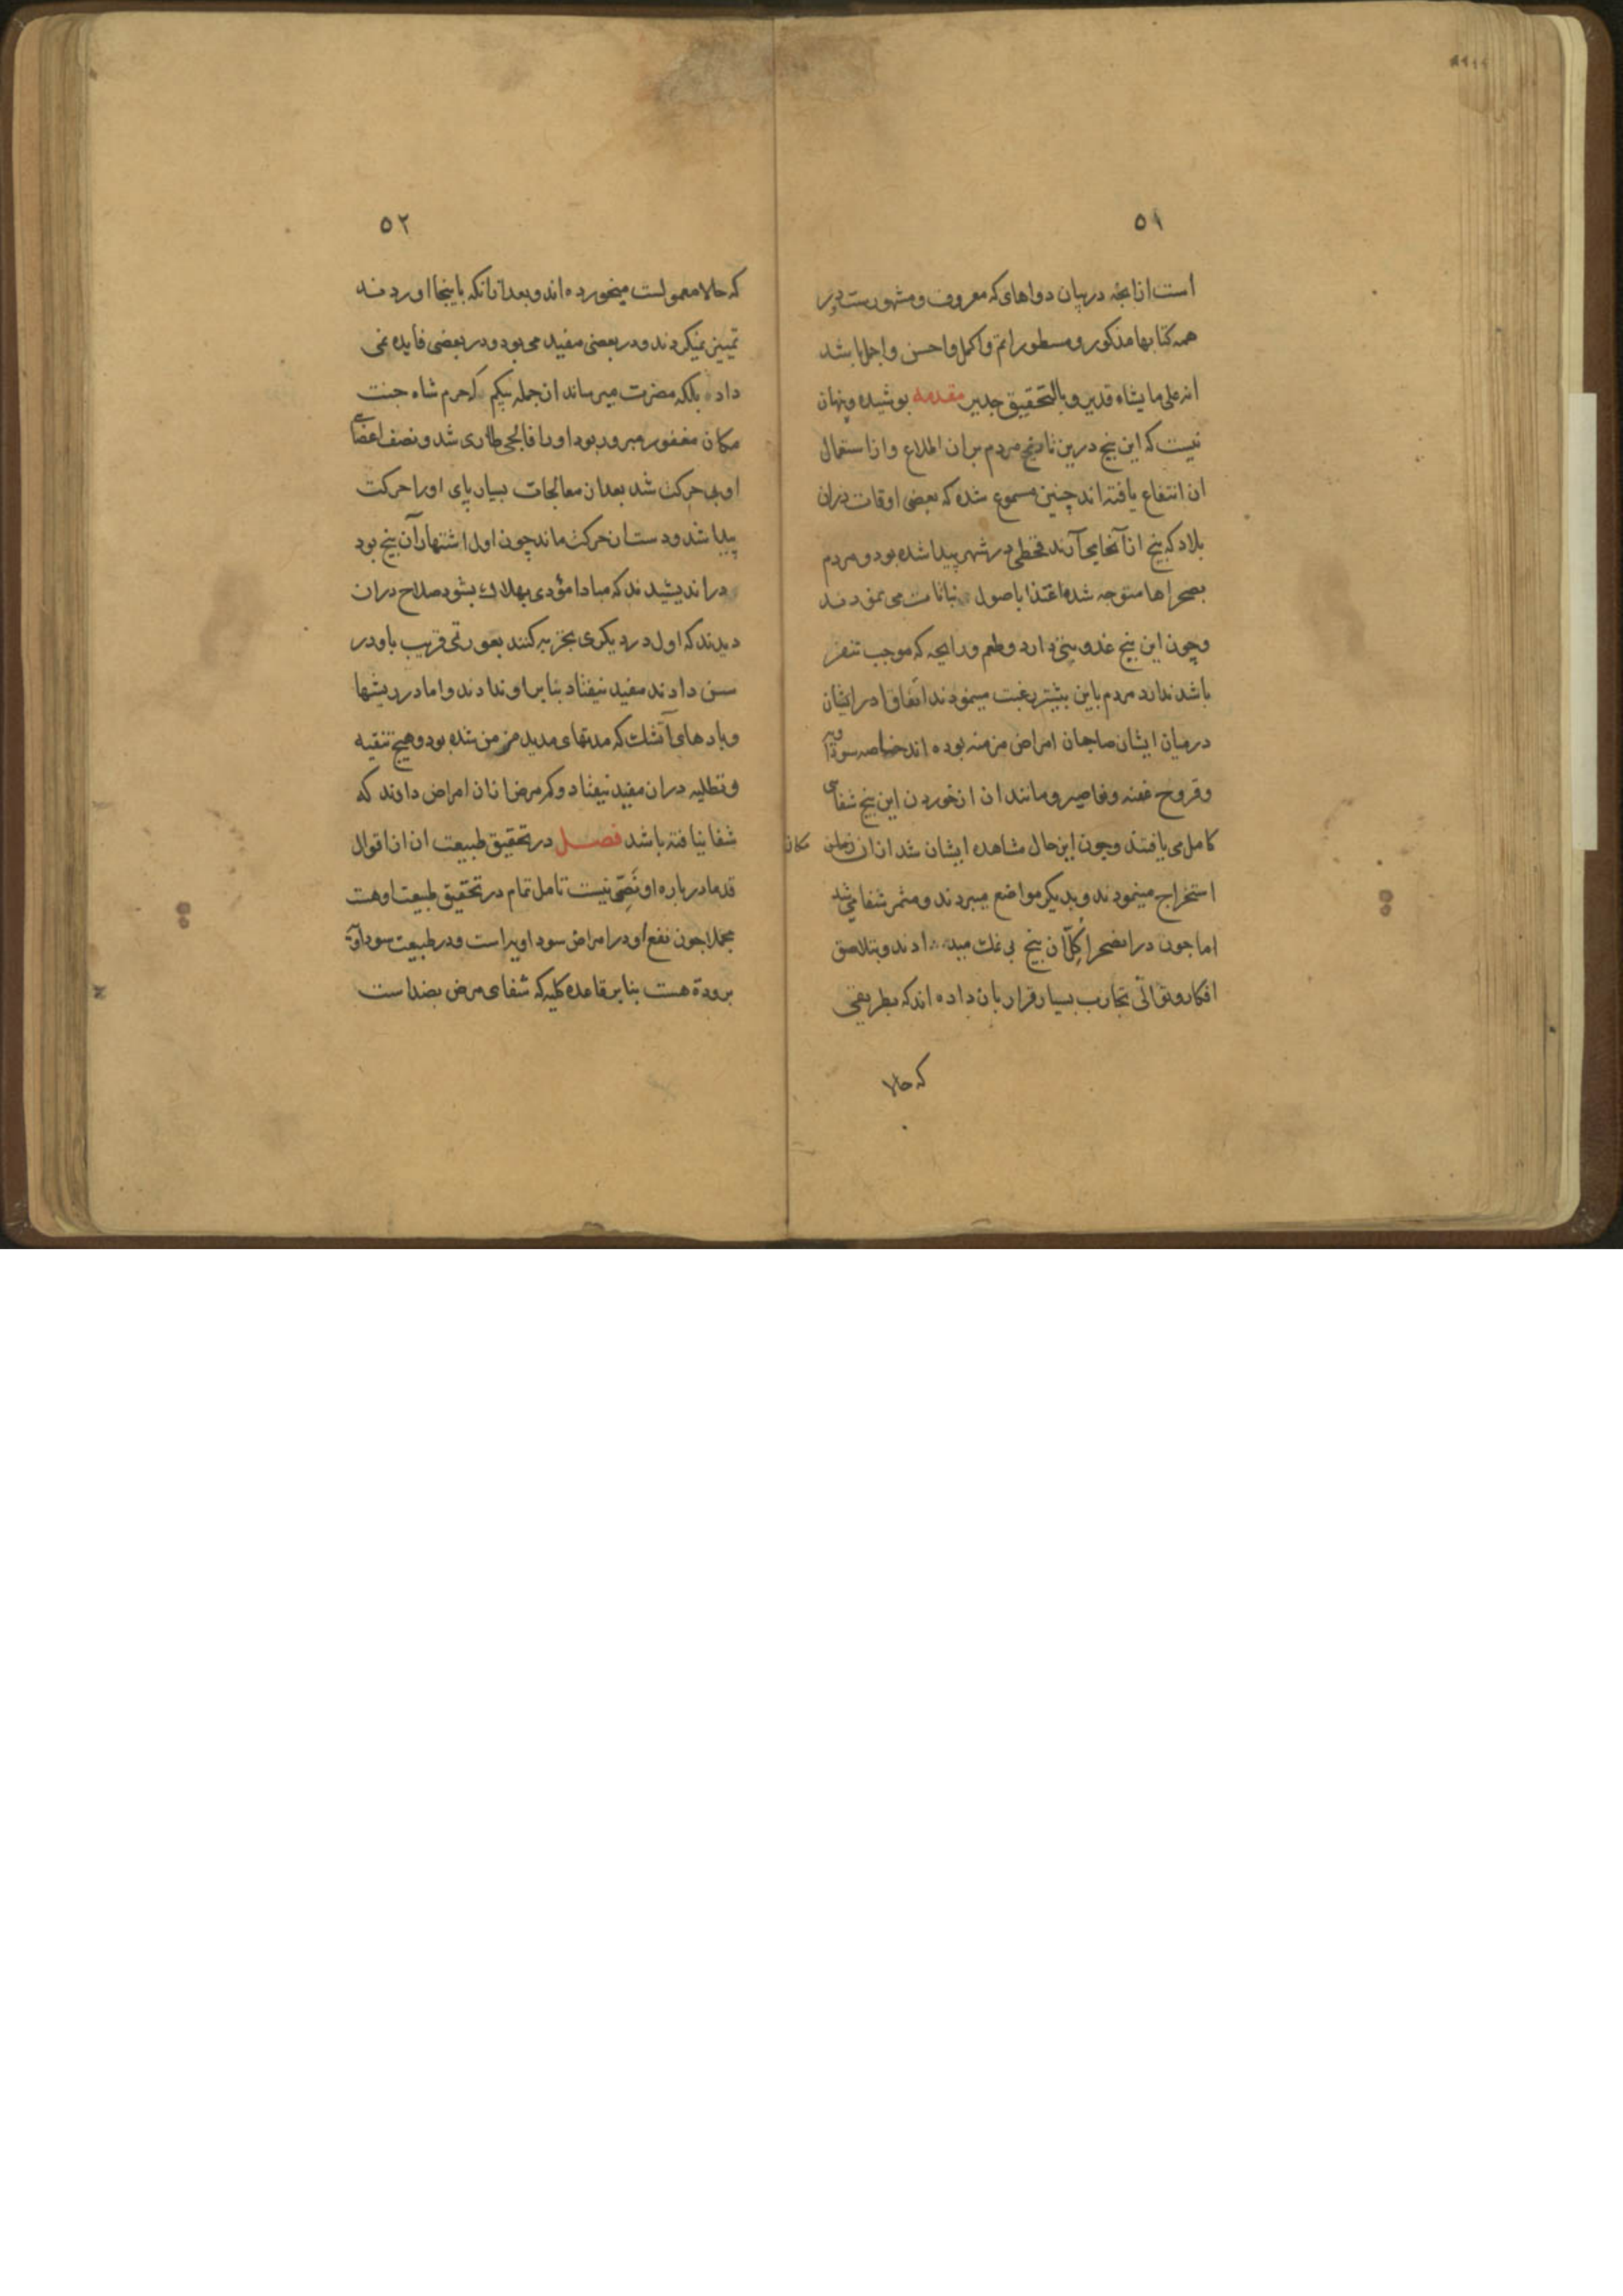 ٥١
است از انچه در بیان دواهای که معروف و مشهورست در
همه کتابها مذکور و مسطور اتم و اکمل و احسن و اجل باشد
انه علی ما یشاء قدیر و بالتحقیق جدیر مقدمه پوشیده و پنهان
نیست که این بیخ درین تاریخ مردم بران اطلاع و از استعمال
ان انتفاع یافته اند چنین مسموع شده که بعضی اوقات دران
بلاد که بیخ از آنجا می آرند قحطی در شهر پیدا شده بود و مردم
بصحراها متوجه شده اغتذا باصول نباتات می نمودند
و چون این بیخ غذوبتی دارد و طعم و رایحه که موجب تنفر
باشد ندارد مردم باین بیشتر رغبت مینمودند اتفاقا در ایشان
درمیان ایشان صاحبان امراض مزمنه بوده اند خاصه سوداویه
و قروح عفنه و مفاصل و مانند ان از خوردن این بیخ شفای
کامل می یافتند و چون این حال مشاهده ایشان شد از ان مکان
استخراج مینمودند و بدیگر مواضع میبردند و مثمر شفا می شد
اما چون در انصحرا کل آن بیخ بی نمک میدادند و بتلاصق
افکار و توالی تجارب بسیار قرار بان داده اند که بطریقی
که حالا
٥٢
که حالا معمولست میخورده اند و بعد ازانکه باینجا اوردند
تمییز نمیکردند و در بعضی مفید می بود و در بعضی فایده نمی
داد بلکه مضرت میرساند ازجمله بیکم که حرم شاه جنت
مکان مغفور مبرور بود او را فالجی طاری شد و نصف اعضای
او بی حرکت شد بعد از معالجات بسیار پای او را حرکت
پیدا شد و دست از حرکت ماند چون اول اشتهار آن بیخ بود
در اندیشیدند که مبادا مؤدی بهلاکت بشود صلاح دران
دیدند که اول در دیگری تجربه کنند بعورتی قریب باو در
سن دادند مفید نیفتاد بنابر او ندادند و اما در ریشها
و بادهای آتشک که مدتهای مدید مزمن شده بود و هیچ تنقیه
و تطلیه دران مفید نیفتاد و کم مرض از ان امراض دادند که
شفا نیافته باشد فصل در تحقیق طبیعت ان از اقوال
قدما در باره او نصی نیست تامل تمام در تحقیق طبیعت او هست
مجملا چون نفع او در امراض سوداویه است و در طبیعت سودا
برودة هست بنا بر قاعده کلیه که شفای مرض بضد است